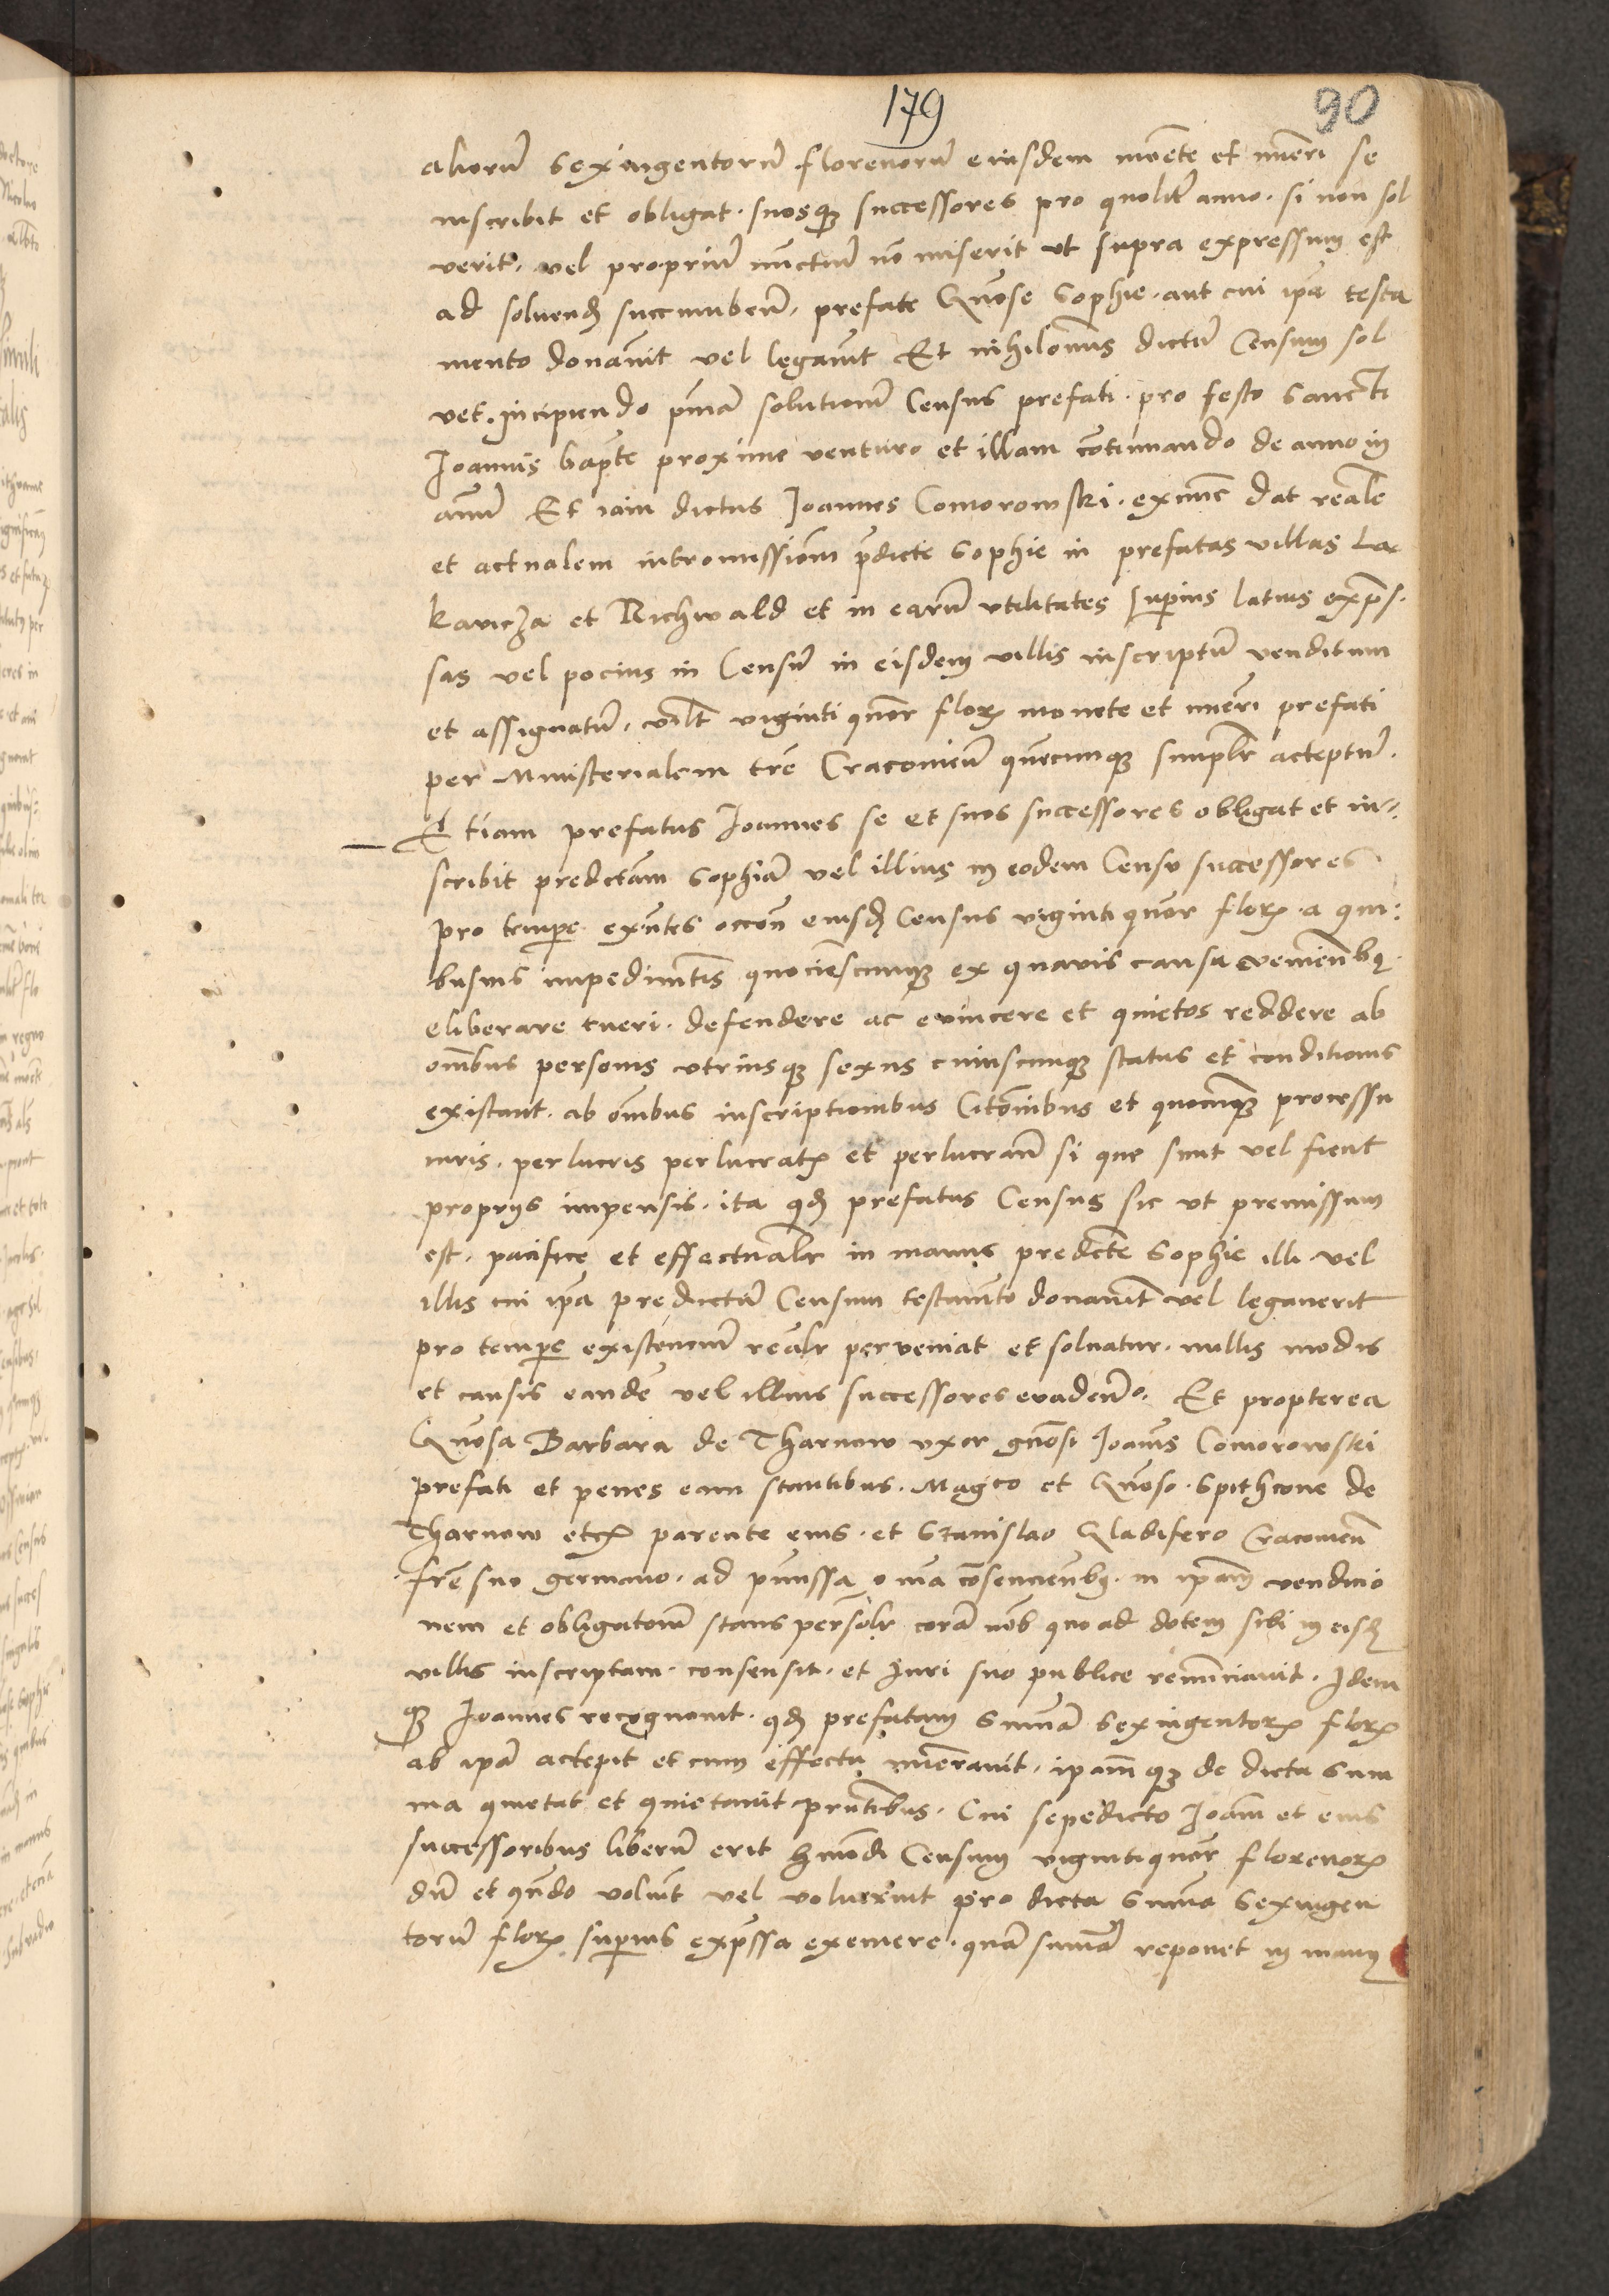 179
90
aliorū sexingentorū florenorū eiusdem monete et nūeri se
inscribit et obligat. suosq3 successores pro quolibet anno. si non sol
verit. vel propriū nūctiū nō miserit ut supra expressum est
ad soluend succumbenm. prefate Gnose Sophie. aut cui ipa testa
mento donauit vel legauit Et nihilominus dictū Censum sol
vet. Incipiendo pimā solutionē Census prefati. pro festo Sancti
Joannis bapte proxime venturo et illam cōtinuando de anno in
annū Et iam dictus Joannes Comorowski. exnunc dat reale
et actualem intromissionē pdicte Sophie in prefatas villas La
kavicza et Richwald et in earū utilitates superius latius expres.
sas vel pocius in Censū in eisdem villis inscriptū venditum
et assignatū. vidlt viginti quor florx monete et nūeri prefati
per Ministerialem tre Cracouien quecunq3 simplr acceptū.
Etiam prefatus Joannes se et suos successores obligat et in=
scribit predictam Sophiā vel illius in eodem Censu successores
pro tempe exntes occone eiusd Census viginti quor florx. a qui=
busuis impedimtis quociescunq3 ex quauis causa evenienbq
eliberare tueri. defendere ac euincere et quietos reddere ab
omibus personis utriusq3 sexus cuiuscunq3 status et conditionis
existant. ab omibus inscriptionibus Citonibus et quocunq3 processu
iuris. perlucris perlucratx et perlucrann si que sunt vel fient
proprijs impensis. ita qd prefatus Census sic ut premissum
est. pacifice et effectualr in manus predicte Sophie illi vel
illis cui ipa predictū Censum testamto donauit vel legauerit
pro tempe existenciū realr perveniat et soluatur. nullis modis
et causis eandē vel illius successores evadendo. Et propterea
Gnosa Barbara de Tharnow uxor gnosi Joanis Comorowski
prefati et penes eam stantibus. Magco et Gnoso. Spithcone de
Tharnow etcx parente eius. et Stanislao Gladifero Cracouien
frē suo germano. ad pmissa oma cōsencienbq. in ipam vendicio
nem et obligatonē stans personlr corā nob quo ad dotem sibi in eisd
villis inscriptam. consensit. et Juri suo publice renūnciauit. Idem
q3 Joannes recognouit. qd prefatam Sumā sexingentorx florx
ab ipā accepit et cum effectu nūerauit. ipamq3 de dicta Sum
ma quietat et quietauit pntibus. Cui sepedicto Joani et eius
successoribus liberū erit hmodi Censum viginti quor florenorx
dū et qndo voluit vel voluerint pro dicta Sumā sexingen
torū florx superius expssa exemere. quā sumā reponet in manus